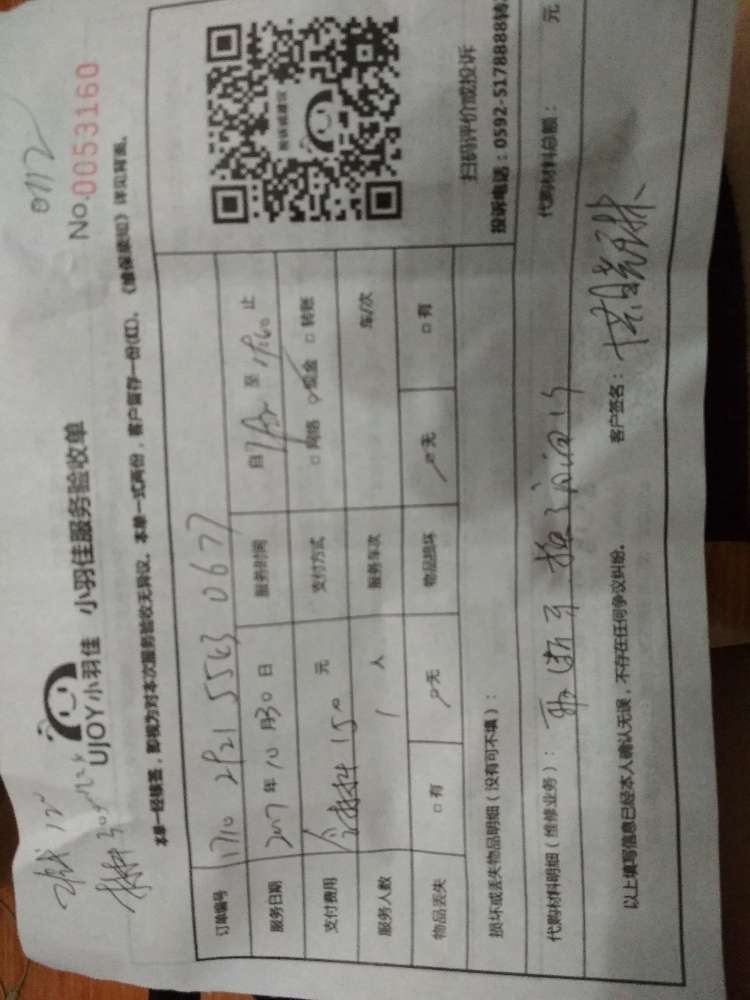 0112
No.0053160
UJOY小羽佳 小羽佳服务验收单
本单一经核签，即视为对本次服务验收无异议。本单一式两份，客户留存一份(红)。《维保须知》详见背面。
订单编号 1710 2921 5543 0677
服务日期 2017年10月30日 服务时间 自 至 止
支付费用 含材料150元 支付方式 □网络 ✓现金 □转账
服务人数 1人 服务车次 车/次
物品丢失 □有 ✓无 物品损坏 ✓无 □有
投诉或建议
扫码评价或投诉
投诉电话：0592-5178888转
损坏或丢失物品明细（没有可不填）：
代购材料明细（维修业务）： 代购材料总额： 元
以上填写信息已经本人确认无误，不存在任何争议纠纷。 客户签名：